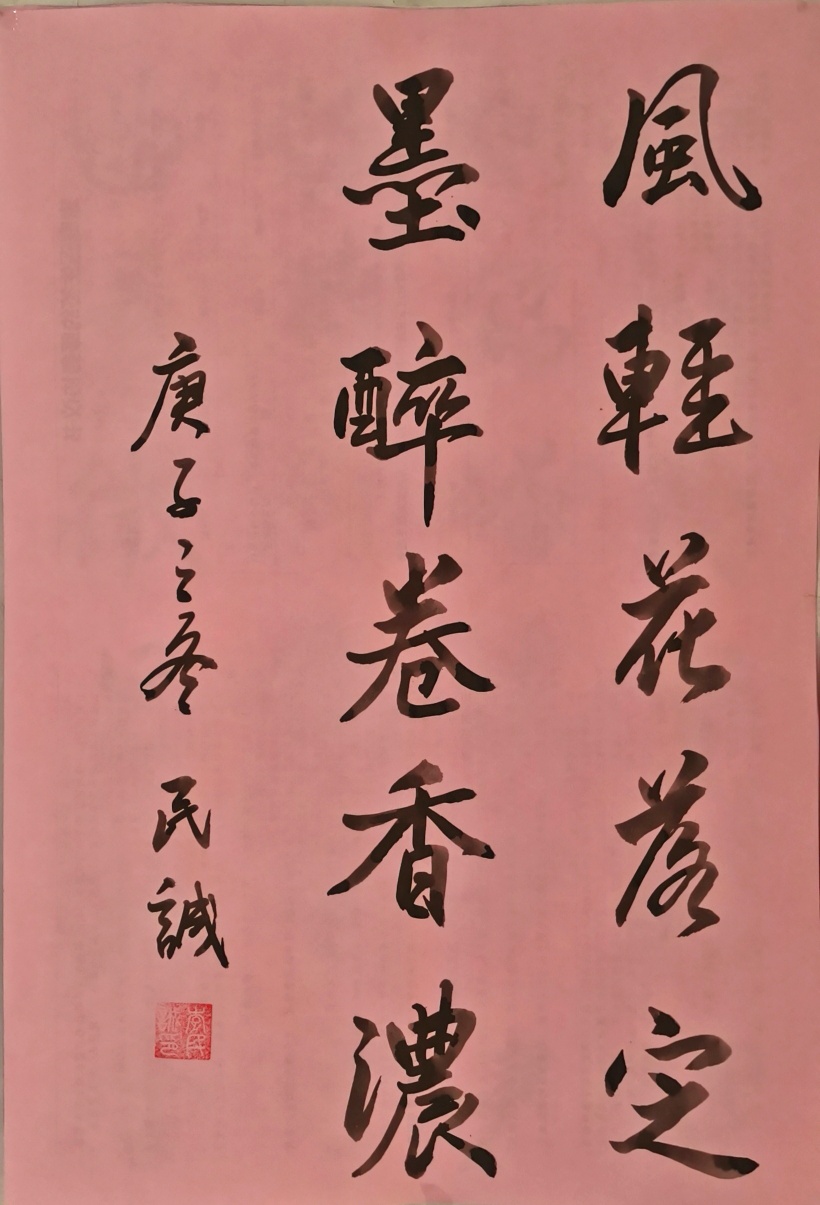 風輕花落定
墨醉卷香濃
庚子之冬 民誠